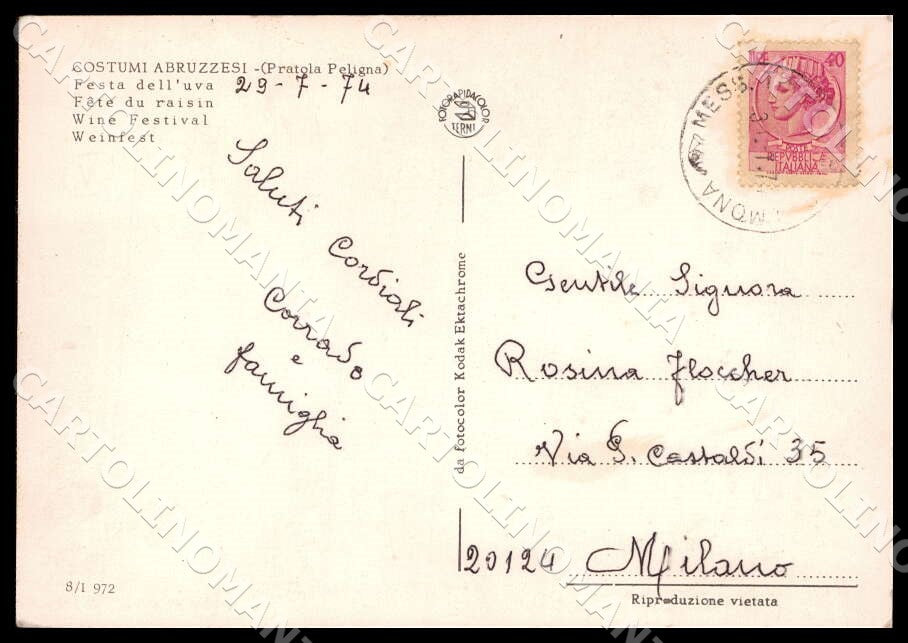 COSTUMI ABRUZZESI - (Pratola Peligna)
Festa dell'uva
Fête du raisin
Wine Festival
Weinfest
29-7-74
Saluti Cordiali
Corrado
e
famiglia
FOTORAPIDACOLOR
TERNI
da Fotocolor Kodak Ektachrome
LIRE 40
POSTE
REPVBBLICA
ITALIANA
Gentile Signora
Rosina Floccher
Via P. Castaldi 35
20124 Milano
8/I 972
Riproduzione vietata
CARTOLINOMANIA